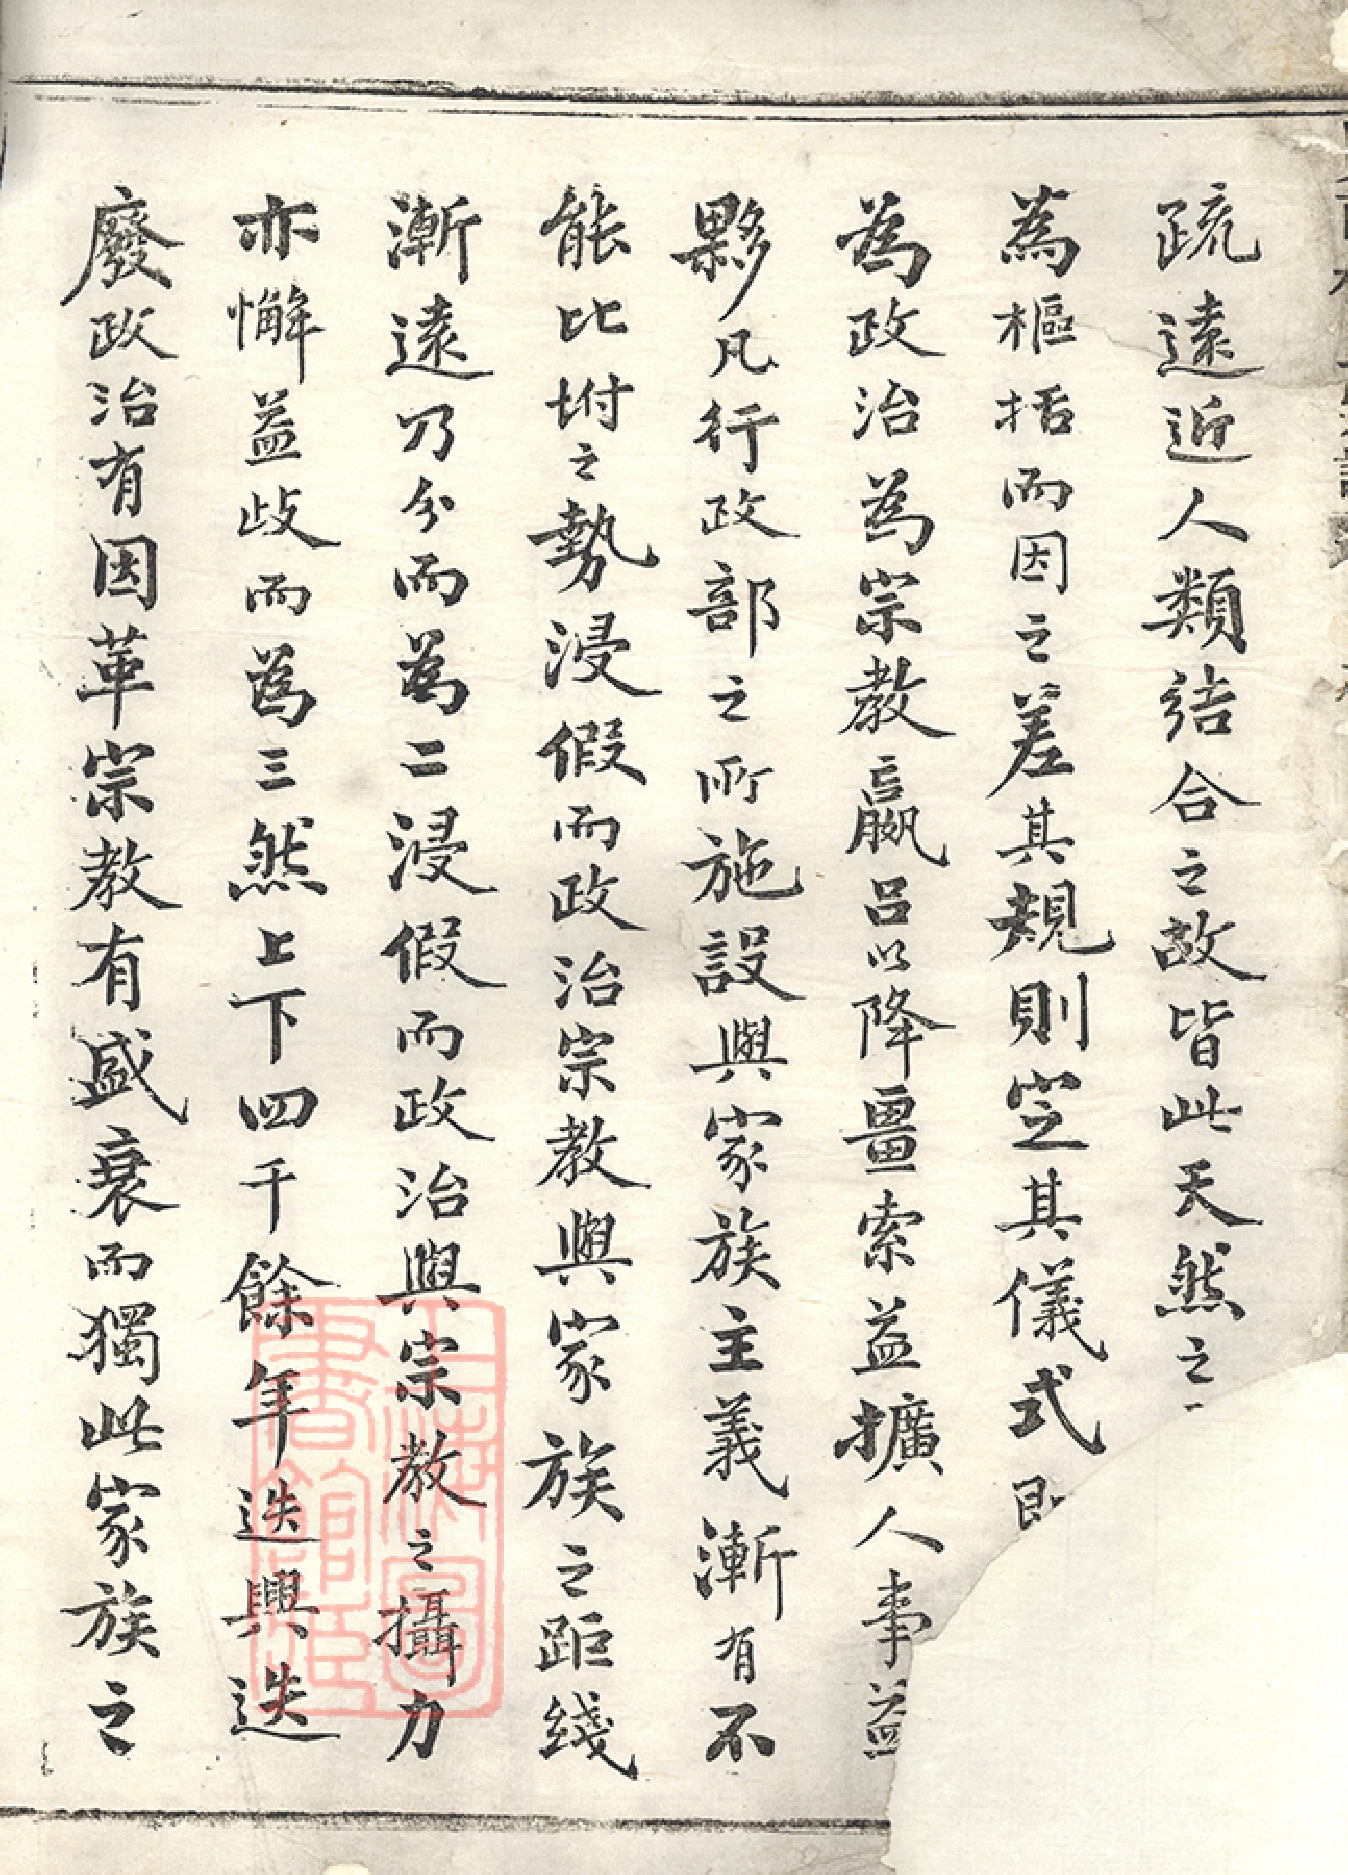 疏遠近人類結合之故皆此天然之
為樞括而因之差其規則定其儀式即
為政治為宗教嬴呂以降畺索益擴人事益
夥凡行政部之所施設與家族主義漸有不
能比坿之勢浸假而政治宗教與家族之距綫
漸遠乃分而為二浸假而政治與宗教之攝力
亦懈益歧而為三然上下四千餘年迭興迭
廢政治有因革宗教有盛衰而獨此家族之
上海圖
書館藏